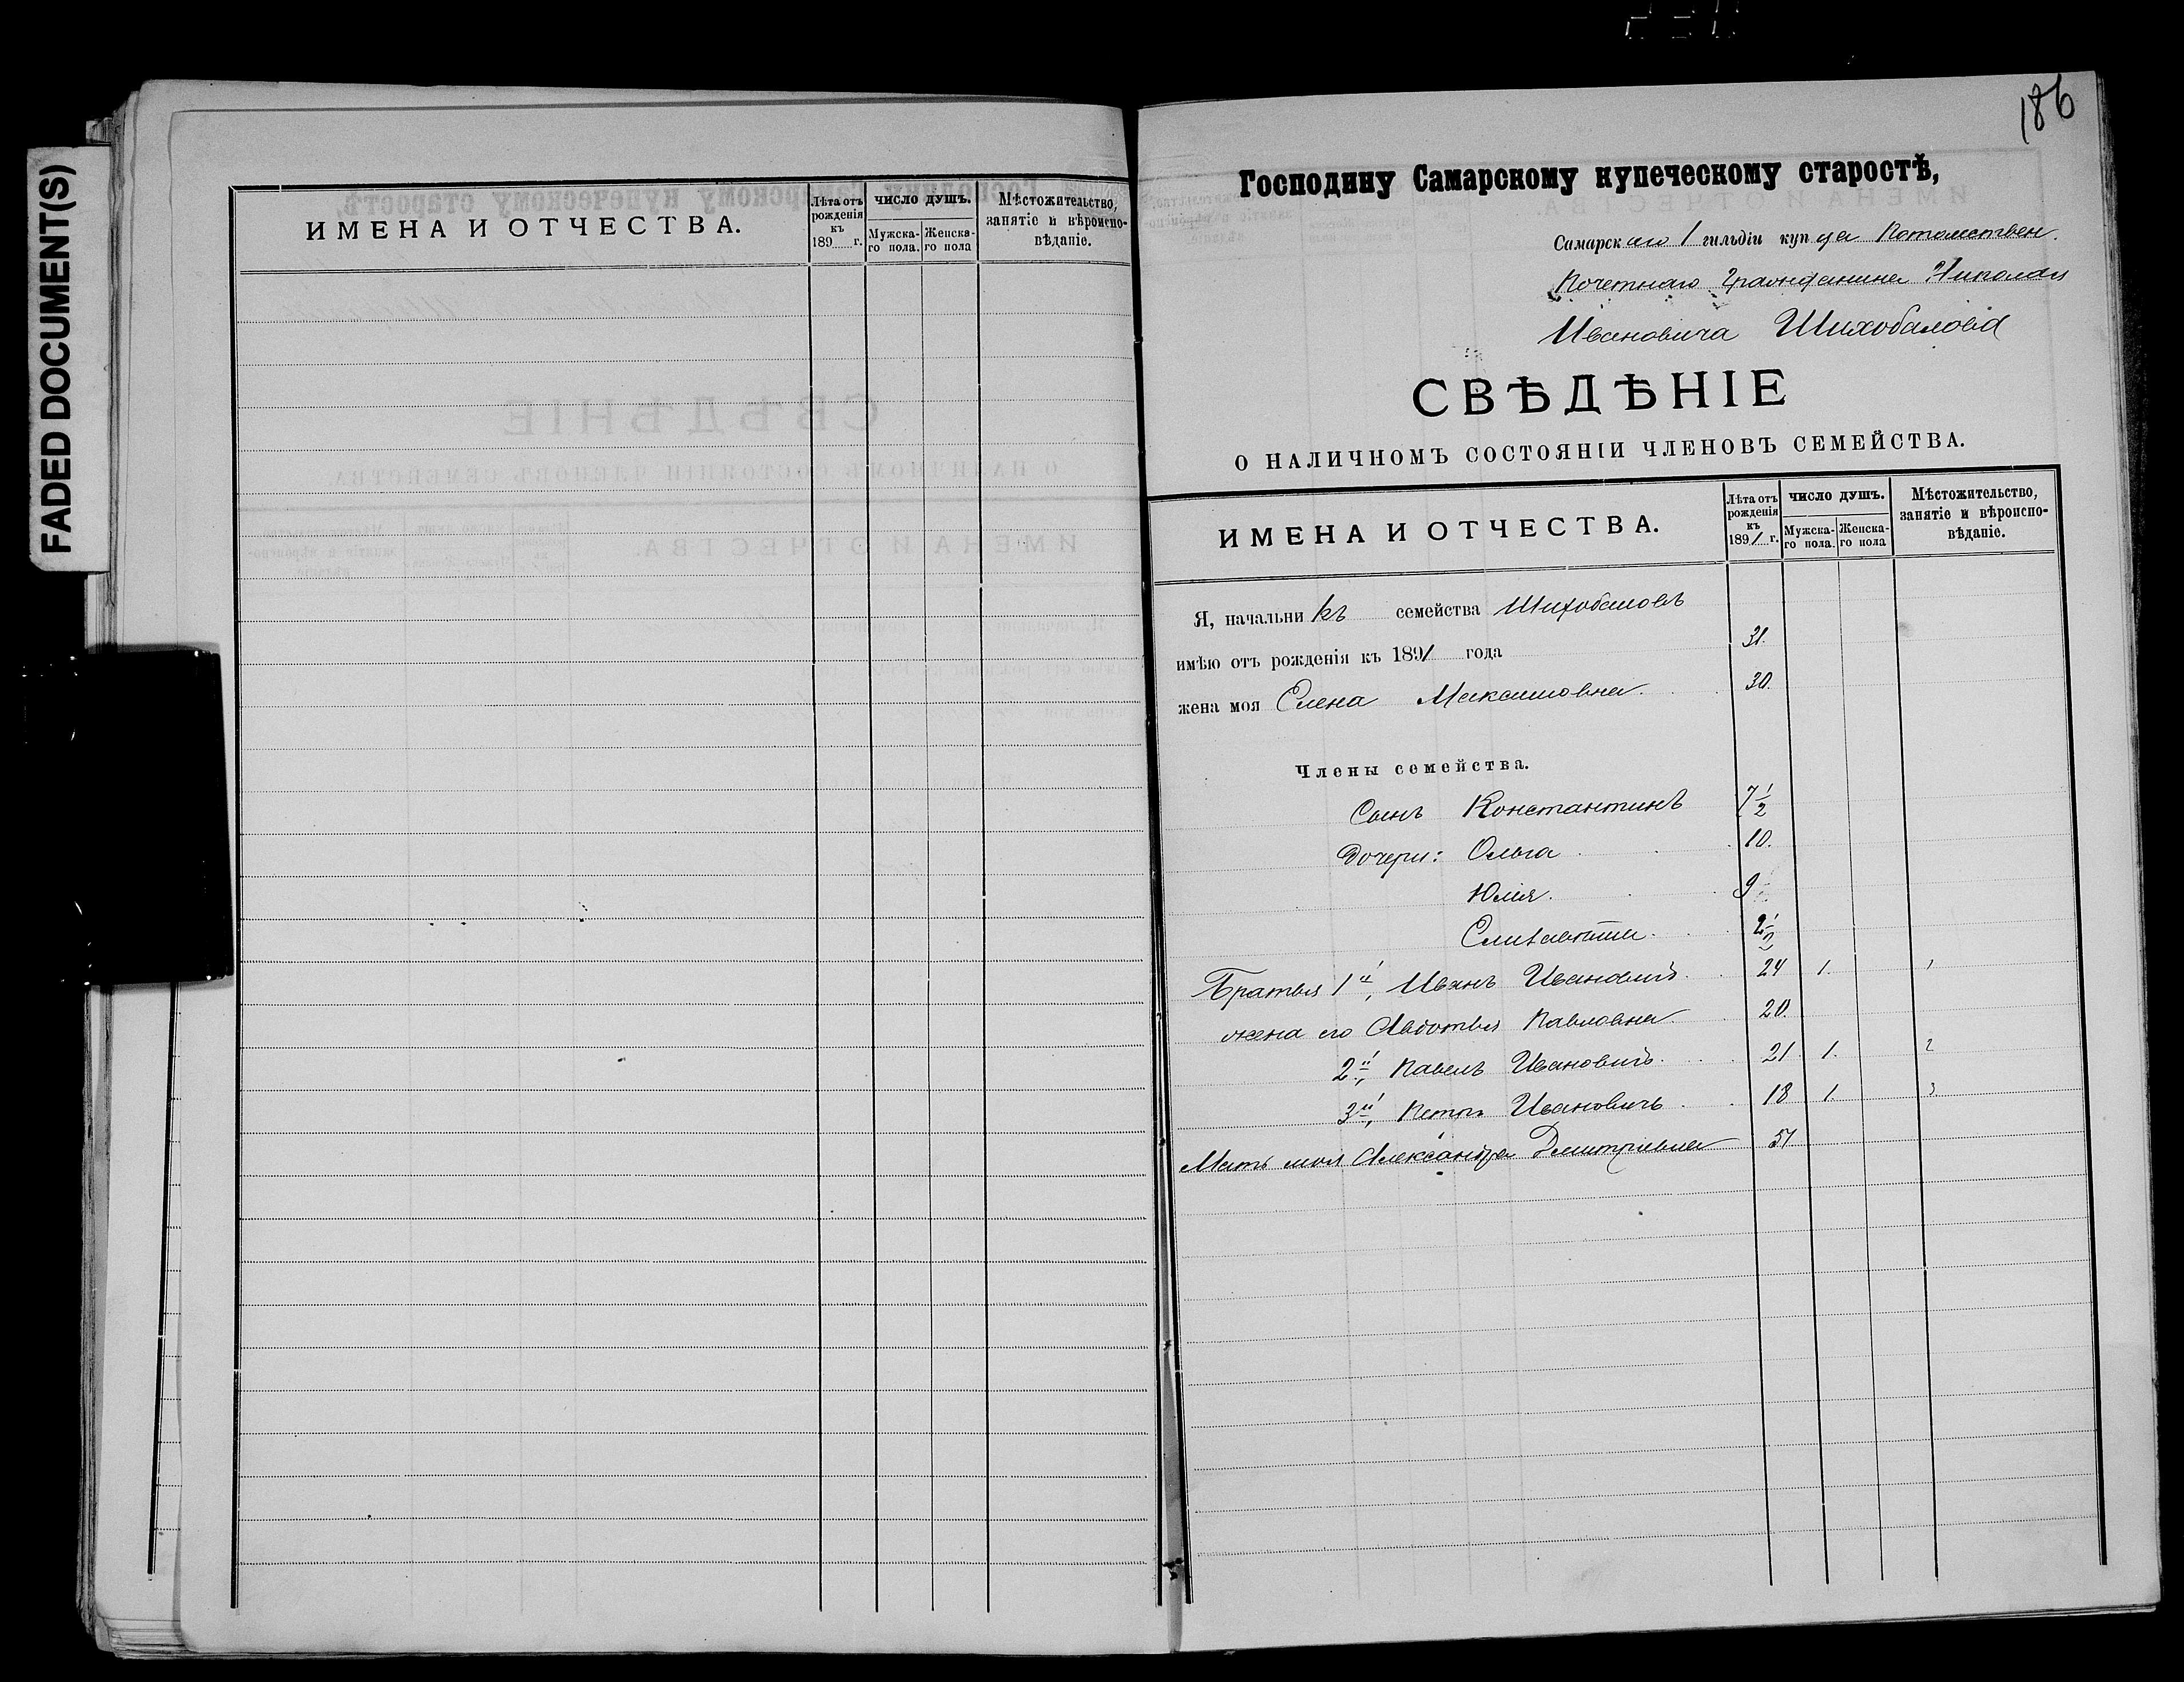 FADED DOCUMENT(S)
ИМЕНА И ОТЧЕСТВА.
Лѣта отъ рожденія къ 189 г.
ЧИСЛО ДУШЪ.
Мужска-го пола.
Женска-го пола
Мѣстожительство, занятіе и вѣроиспо-вѣданіе.
186
Господину Самарскому купеческому старостѣ,
Самарскаго 1 гильдіи купца Потомствен.
Почетнаго Гражданина Николая
Ивановича Шихобалова
СВѢДѢНІЕ
О НАЛИЧНОМЪ СОСТОЯНІИ ЧЛЕНОВЪ СЕМЕЙСТВА.
ИМЕНА И ОТЧЕСТВА.
Лѣта отъ рожденія къ 1891 г.
ЧИСЛО ДУШЪ.
Мужска-го пола.
Женска-го пола
Мѣстожительство, занятіе и вѣроиспо-вѣданіе.
Я, начальникъ семейства Шихобаловъ
имѣю отъ рожденія къ 1891 года 31.
жена моя Елена Максимовна. 30.
Члены семейства.
Сынъ Константинъ 7 1/2
Дочери: Ольга 10.
Юлія. 9
Елизавета. 2 1/2
Братья 1й, Иванъ Ивановичъ. 24 1. 1
жена его Авдотья Павловна. 20.
2й, Павелъ Ивановичъ. 21 1. 2
3й, Петръ Ивановичъ. 18 1. 3
Мать моя Александра Дмитріевна 51